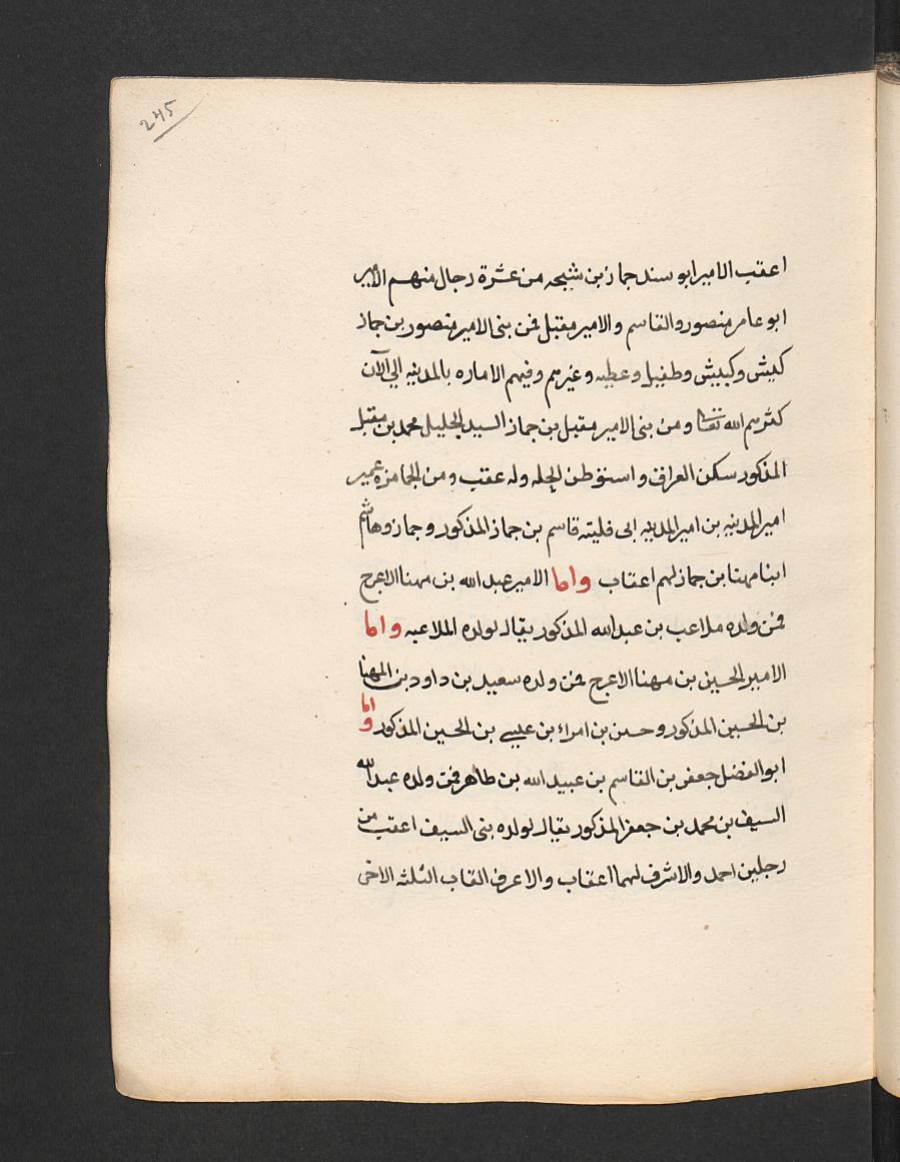 245
اعقب الامير ابو سند جماز بن شيحه من عشرة رجال منهم الامير
ابو عامر منصور والقاسم والامير مقبل فمن بنى الامير منصور بن جماز
كبش وكبيش وطفيل وعطيه وغيرهم وفيهم الاماره بالمدينه الى الآن
كثرهم الله تعالى ومن بنى الامير مقبل بن جماز السيد الجليل محمد بن مقبل
المذكور سكن العراق واستوطن الحله وله عقب ومن الجمامزه عمير
امير المدينه بن امير المدينه ابى فليته قاسم بن جماز المذكور وجماز وهاشم
ابنا مهنا بن جماز لهم اعقاب واما الامير عبد الله بن مهنا الاعرج
فمن ولده ملاعب بن عبد الله المذكور يقال لولده الملاعبه واما
الامير الحسين بن مهنا الاعرج فمن ولده سعيد بن داود بن المهنا
بن الحسين المذكور وحسن بن امراء بن عيسى بن الحسين المذكور واما
ابو الفضل جعفر بن القاسم بن عبيد الله بن طاهر فمن ولده عبد الله
السيف بن محمد بن جعفر المذكور يقال لولده بنى السيف اعقب من
رجلين احمد والاشرف لهما اعقاب والاعرف القاب الثلثه الاخى